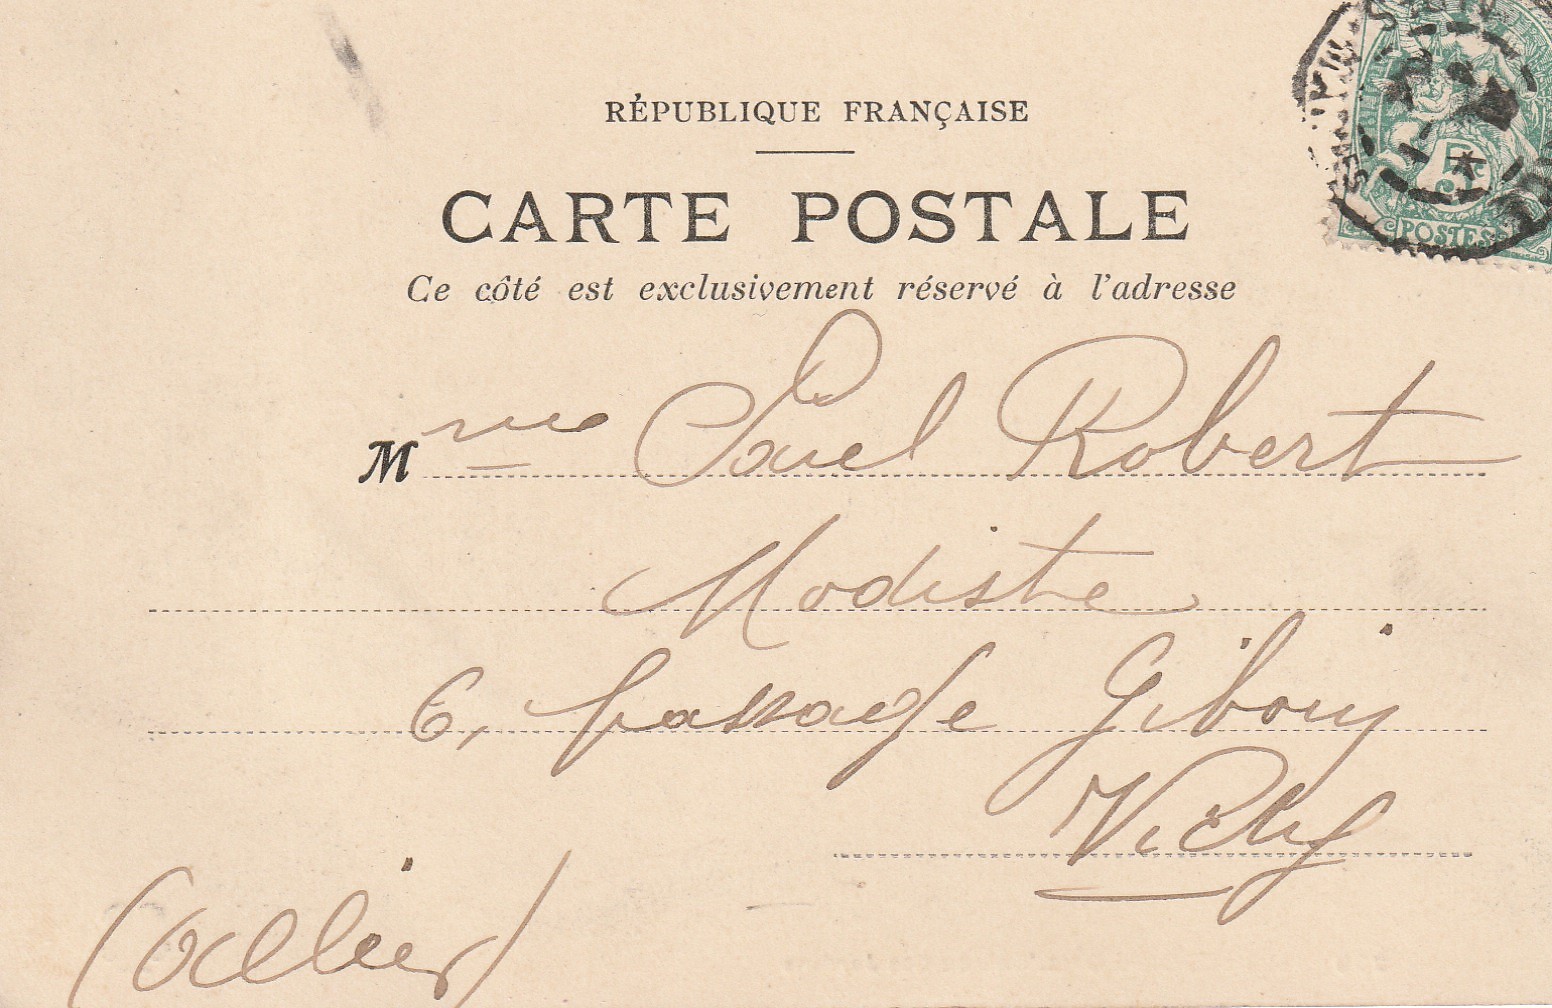 RÉPUBLIQUE FRANÇAISE
CARTE POSTALE
Ce côté est exclusivement réservé à l'adresse
5c
POSTES
Mme Paul Robert
Modiste
6, passage Giboin
Vichy
(Allier)